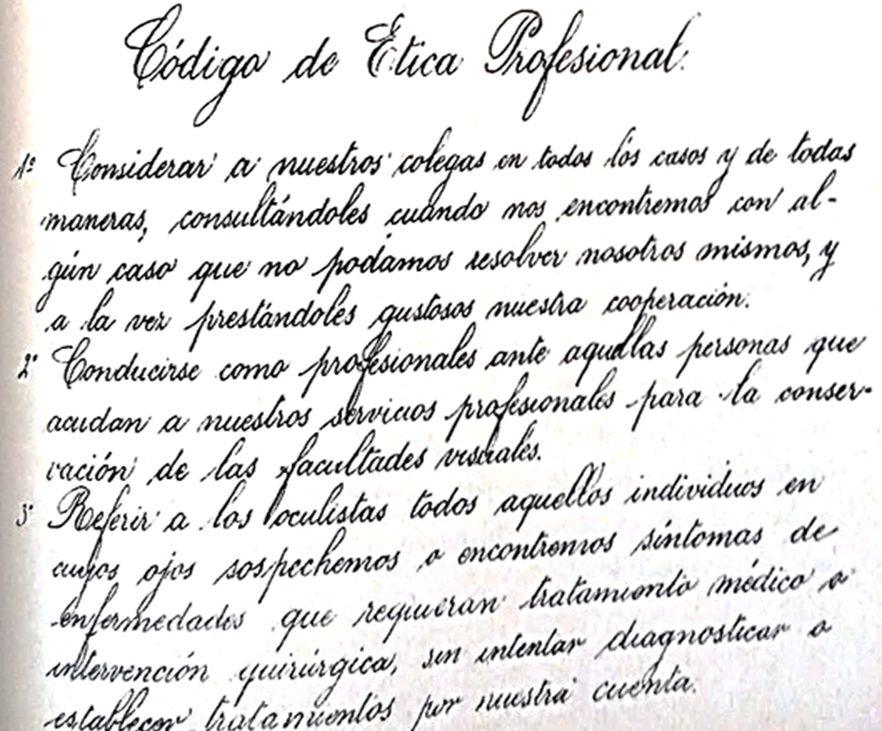 Código de Etica Profesional.
1º Considerar a nuestros colegas en todos los casos y de todas
maneras, consultándoles cuando nos encontremos con al-
gún caso que no podamos resolver nosotros mismos, y
a la vez prestándoles gustosos nuestra cooperación.
2º Conducirse como profesionales ante aquellas personas que
acudan a nuestros servicios profesionales para la conser-
vación de las facultades visuales.
3º Referir a los oculistas todos aquellos individuos en
cuyos ojos sospechemos o encontremos síntomas de
enfermedades que requieran tratamiento médico o
intervención quirúrgica, sin intentar diagnosticar o
establecer tratamientos por nuestra cuenta.